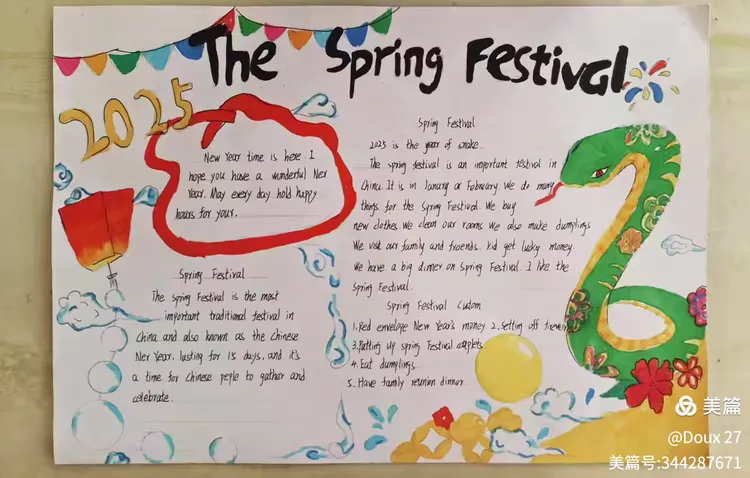 The Spring Festival
2025
New Year time is here I
hope you have a wunderful Ner
Year. May every day hold happy
hours for your.
Spring Festival
The spring Festival is the most
important traditional festival in
China and also known as the Chinese
Ner Year. lasting for 15 days. and it's
a time for Chinese peple to gather and
celebrate.
Spring Festival
2025 is the year of snake.
The spring festival is an important festival in
China. It is in January or February We do many
things for the Spring Festival. We buy
new clothes We clean our rooms We also make dumplings
We visit our family and friends. kid get lucky money.
We have a big dinner on Spring Festival. I like the
Spring Festival.
Spring Festival Custom
1. Red envelope New Year's money 2. Setting off
3. Putting up spring Festival
4. Eat dumplings
5. Have family reunion dinner
美篇
@Doux 27
美篇号:344287671